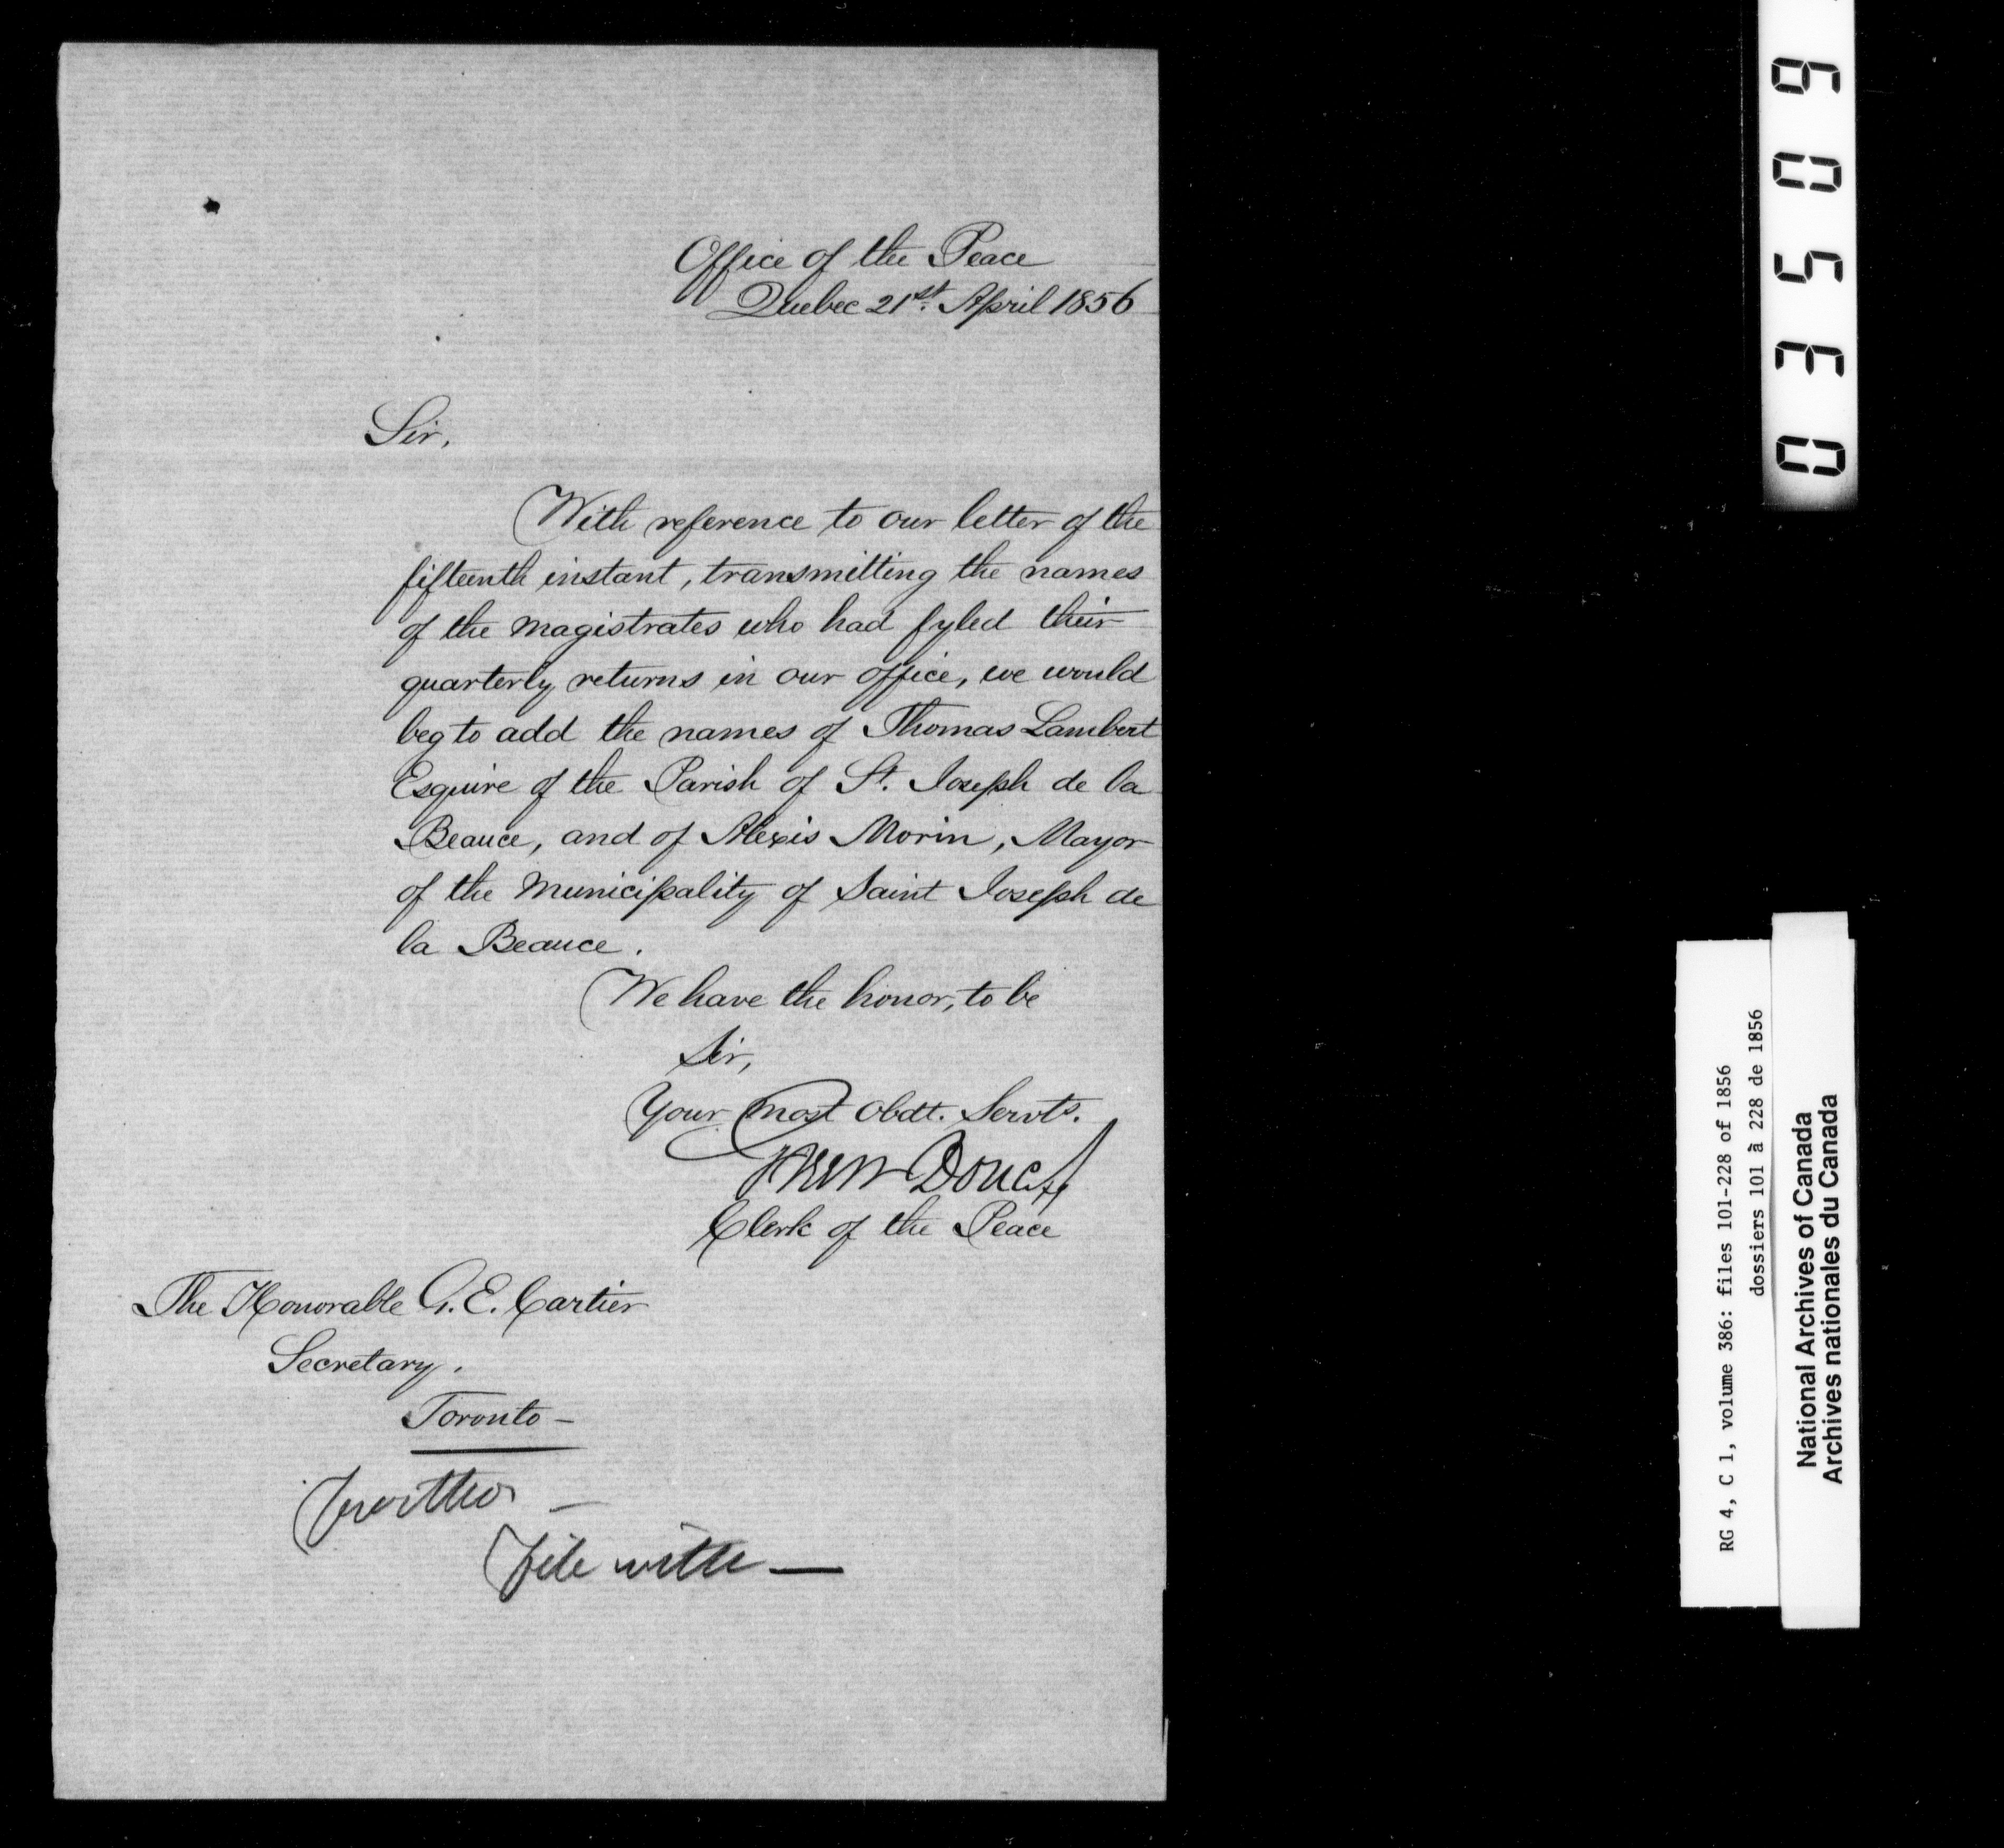 Office of the Peace
Quebec 21st. April 1856
Sir,
With reference to our letter of the
fifteenth instant, transmitting the names
of the magistrates who had fyled their
quarterly returns in our office, we would
beg to add the names of Thomas Lambert
Esquire of the Parish of St. Joseph de la
Beauce, and of Alexis Morin, Mayor
of the Municipality of Saint Joseph de
la Beauce.
We have the honor, to be
Sir,
Your most obdt. Servts.
Clerk of the Peace
The Honorable G. E. Cartier
Secretary.
Toronto -
file with —
03509
RG 4, C 1, volume 386: files 101-228 of 1856
dossiers 101 à 228 de 1856
National Archives of Canada
Archives nationales du Canada